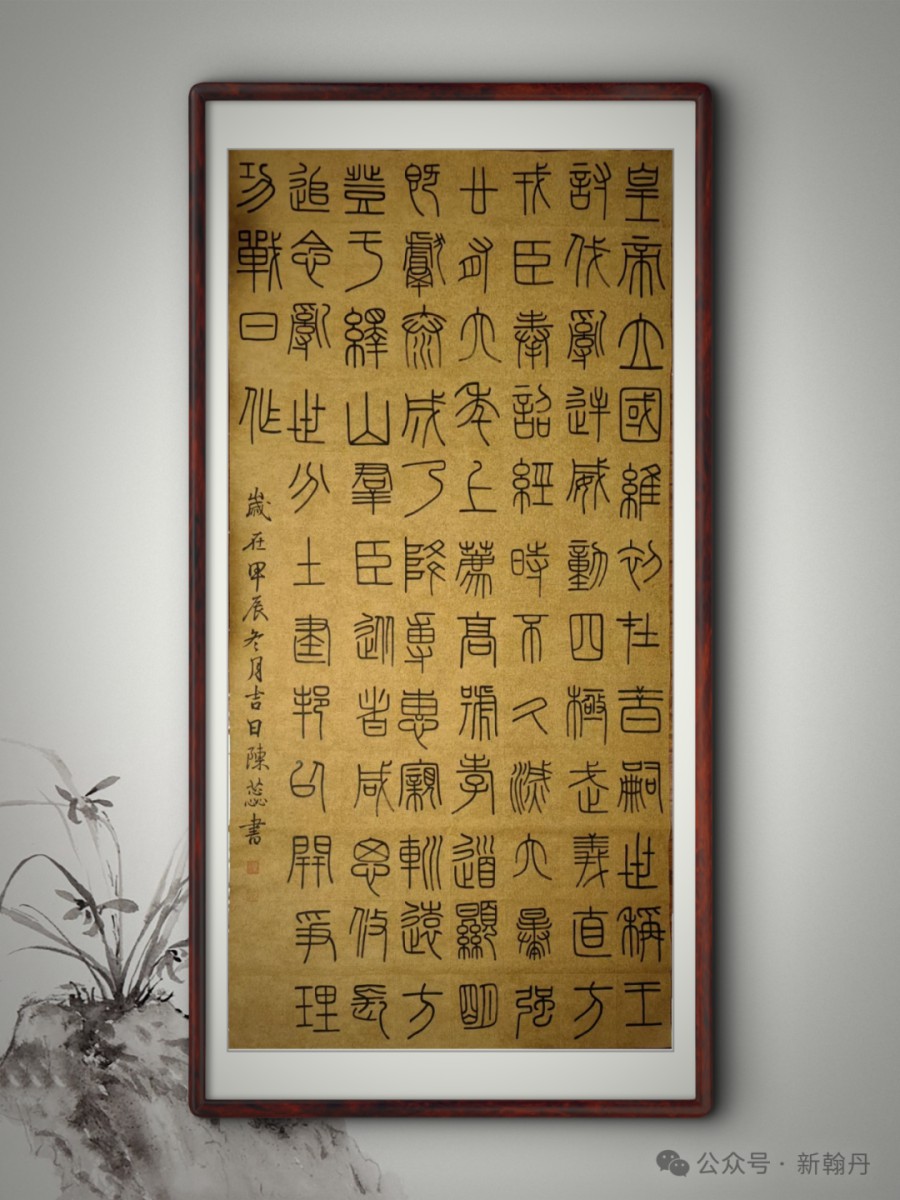 皇帝立國維初在昔嗣世稱王
討伐亂逆威動四極武義直方
戎臣奉詔經時不久滅六暴強
廿有六年上薦高號孝道顯明
既獻泰成乃降專惠寴巡遠方
登于繹山羣臣從者咸思攸長
追念亂世分土建邦以開爭理
功戰日作
歲在甲辰冬月吉日陳蕊書
公众号·新翰丹